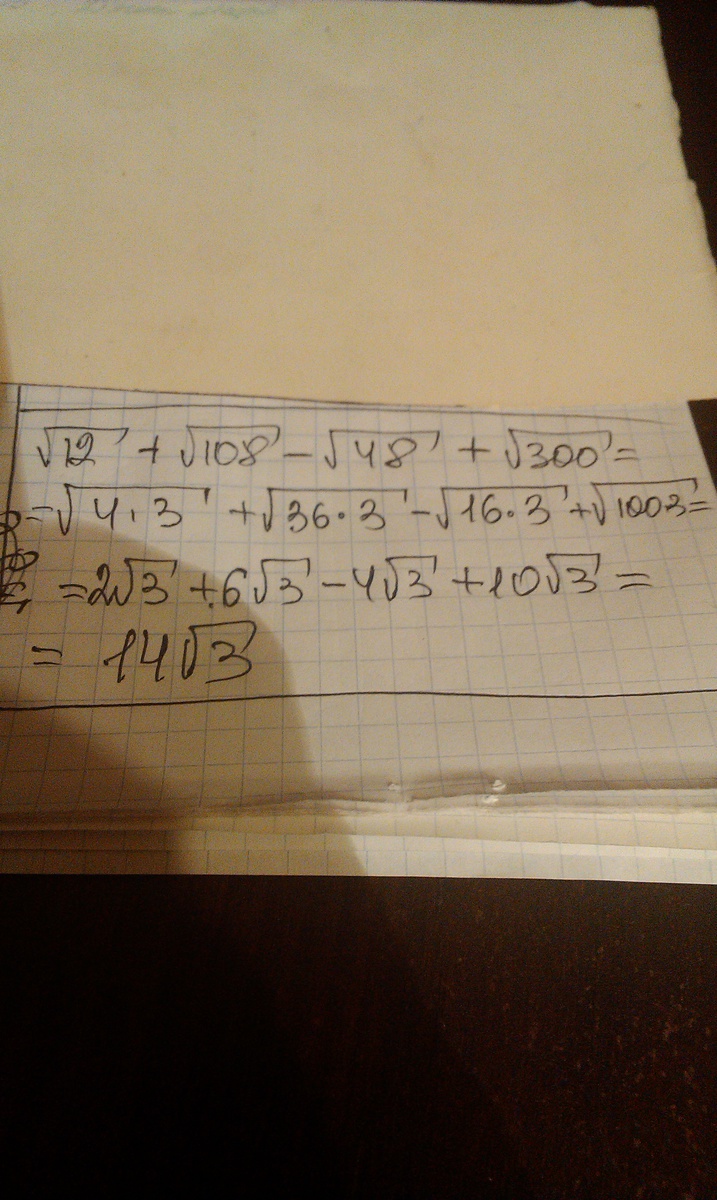 √12 + √108 − √48 + √300 =
= √4·3 + √36·3 − √16·3 + √100·3 =
= 2√3 + 6√3 − 4√3 + 10√3 =
= 14√3